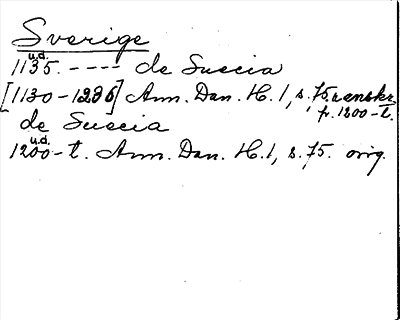 Sverige
u.d.
1135. ---- de Suecia
[1130-1286] Ann. Dan. H. 1, s. 75, avskr.
f. 1200-t.
de Suecia
u.d.
1200-t. Ann. Dan. H. 1, s. 75. orig.